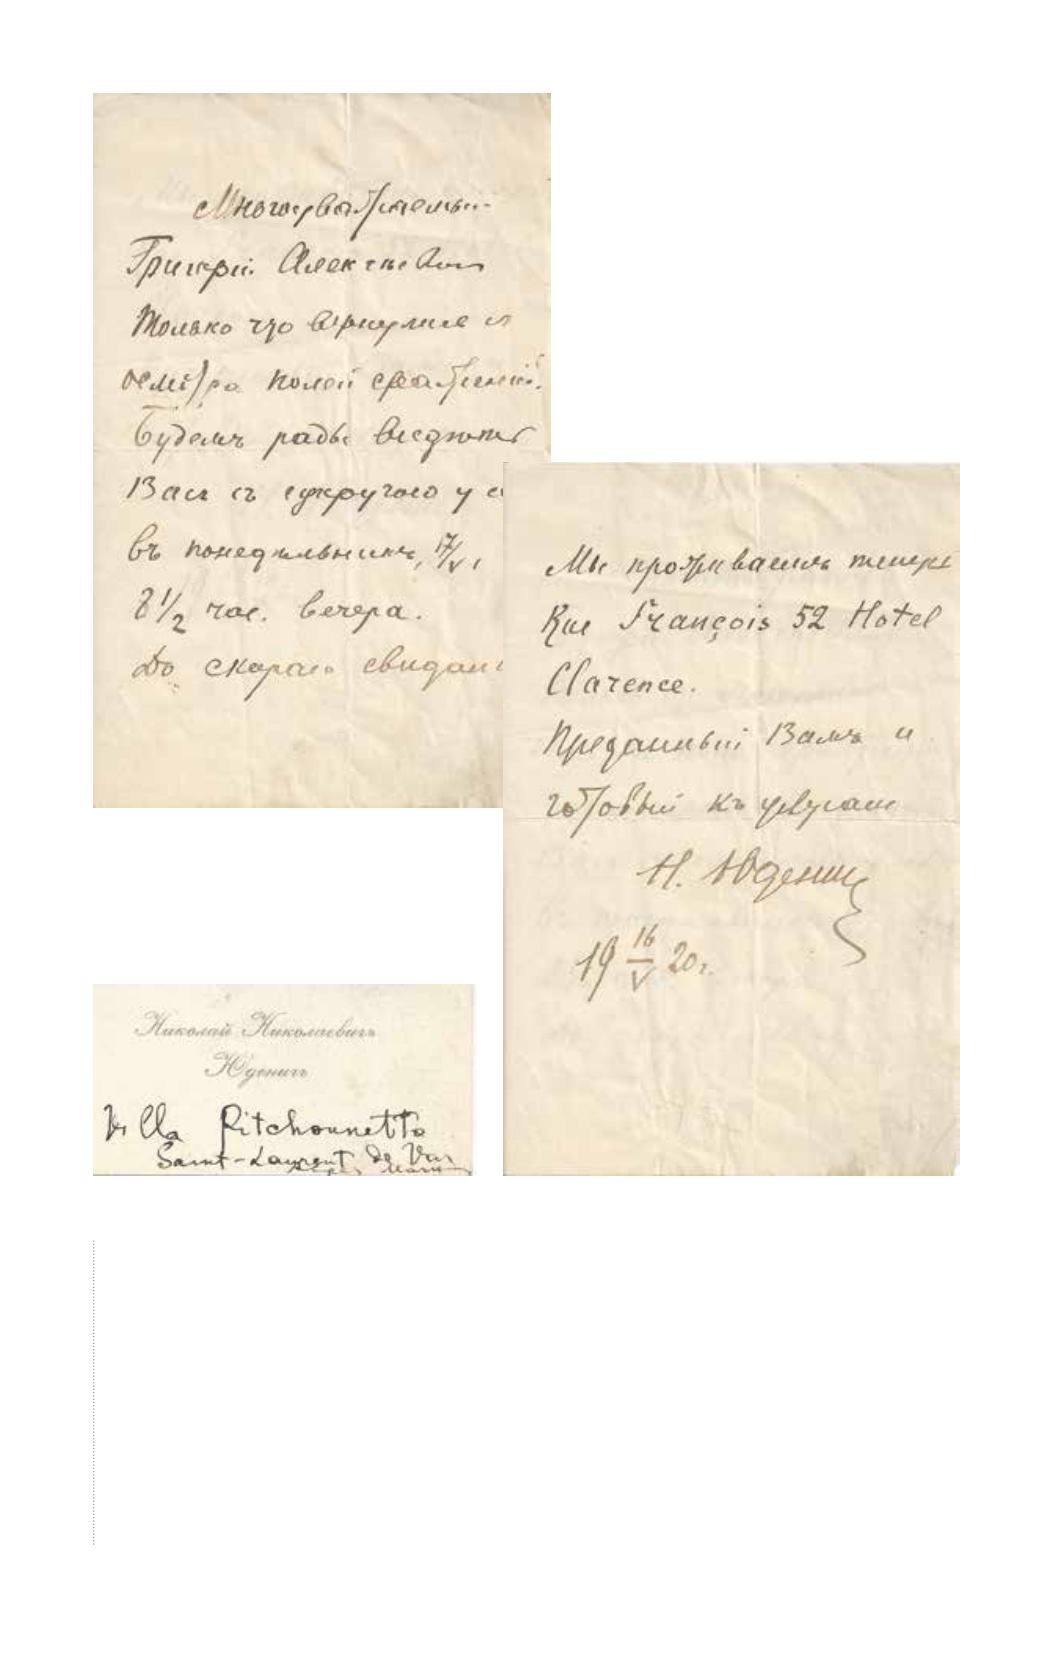 Многоуважаемый
Григорій Алексѣевичъ
Только что вернулись съ
осмотра полей сраженій.
Будемъ рады видѣть
Васъ съ супругою у
въ понедѣльникъ, 17/V,
8 1/2 час. вечера.
До скораго свидан
Мы проживаемъ теперь
Rue François 52 Hotel
Clarence.
Преданный Вамъ и
готовый къ услугамъ
Н. Юденич
19 16/V 20г.
Николай Николаевичъ
Юденичъ
Villa Pitchounetto
Saint-Laurent du Var